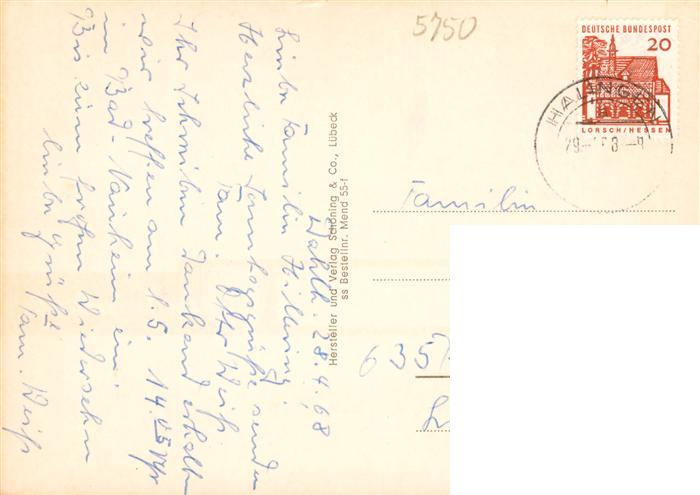 5750
DEUTSCHE BUNDESPOST
20
LORSCH/HESSEN
HAINGEN
29.
Wahlb. 28.4.68
Liebe Familie Hillering!
Herzliche Sonntagsgrüße senden
Fam. Otto Weiß
Ihr Schreiben dankend erhalten
wir treffen am 1.5. 14.45 Uhr
in Bad-Nauheim ein.
Bis zum frohen Wiedersehn
liebe Grüße
Fam. Weiß
Hersteller und Verlag Schöning & Co., Lübeck
ss Bestellnr. Mend 55-f
Familie
6357